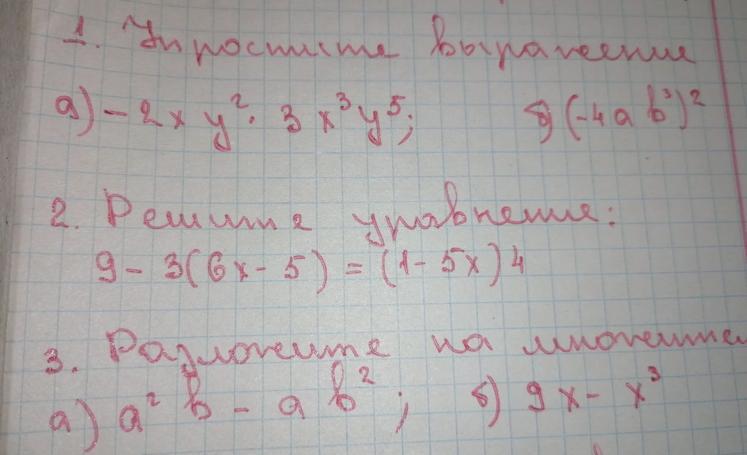 1. Упростите выражение
а) - 2x y²· 3 x³y⁵; б) (-4a b³)²
2. Решите уравнение:
9 - 3(6x - 5) = (1 - 5x) 4
3. Разложите на множители
а) a² b - a b² ; б) 9x - x³